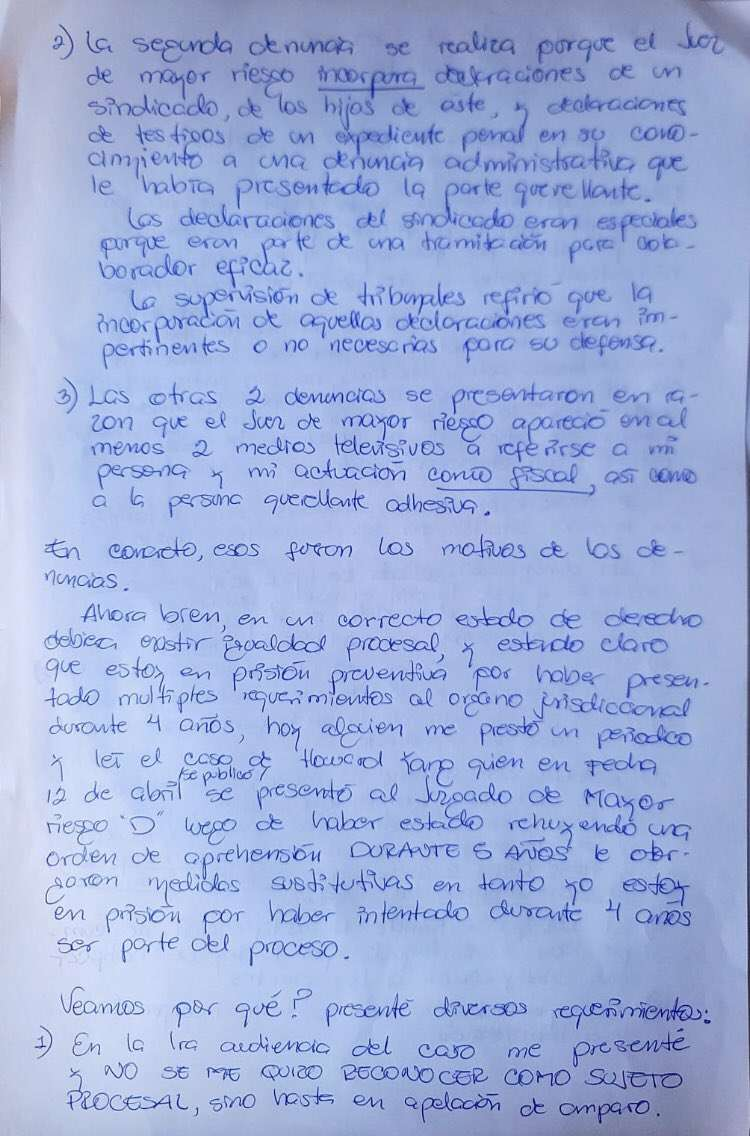 2) La segunda denuncia se realiza porque el Juez
de mayor riesgo incorpora declaraciones de un
sindicado, de los hijos de aste, y declaraciones
de testigos de un expediente penal en su cono-
cimiento a una denuncia administrativa que
le había presentado la parte querellante.
Las declaraciones del sindicado eran especiales
porque eran parte de una tramitación para cola-
borador eficaz.
La supervisión de tribunales refirió que la
incorporación de aquellas declaraciones eran im-
pertinentes o no necesarias para su defensa.
3) Las otras 2 denuncias se presentaron en ra-
zon que el Juez de mayor riesgo apareció en al
menos 2 medios televisivos a referirse a mi
persona y mi actuación como fiscal, así como
a la persona querellante adhesiva.
En concreto, esos fueron los motivos de las de-
nuncias.
Ahora bien, en un correcto estado de derecho
debiera existir igualdad procesal, y estando claro
que estoy en prisión preventiva por haber presen-
tado multiples requerimientos al organo jurisdiccional
durante 4 años, hoy alguien me prestó un periodico
y leí el caso de Howard Yang quien en fecha
12 de abril (se publicó) se presentó al Juzgado de Mayor
riesgo "D" luego de haber estado rehuyendo una
orden de aprehensión DURANTE 5 AÑOS le otor-
garon medidas sustitutivas en tanto yo estoy
en prisión por haber intentado durante 4 años
ser parte del proceso.
Veamos por qué? presenté diversos requerimientos:
1) En la 1ra audiencia del caso me presenté
y NO SE ME QUIZO RECONOCER COMO SUJETO
PROCESAL, sino hasta en apelación de amparo.